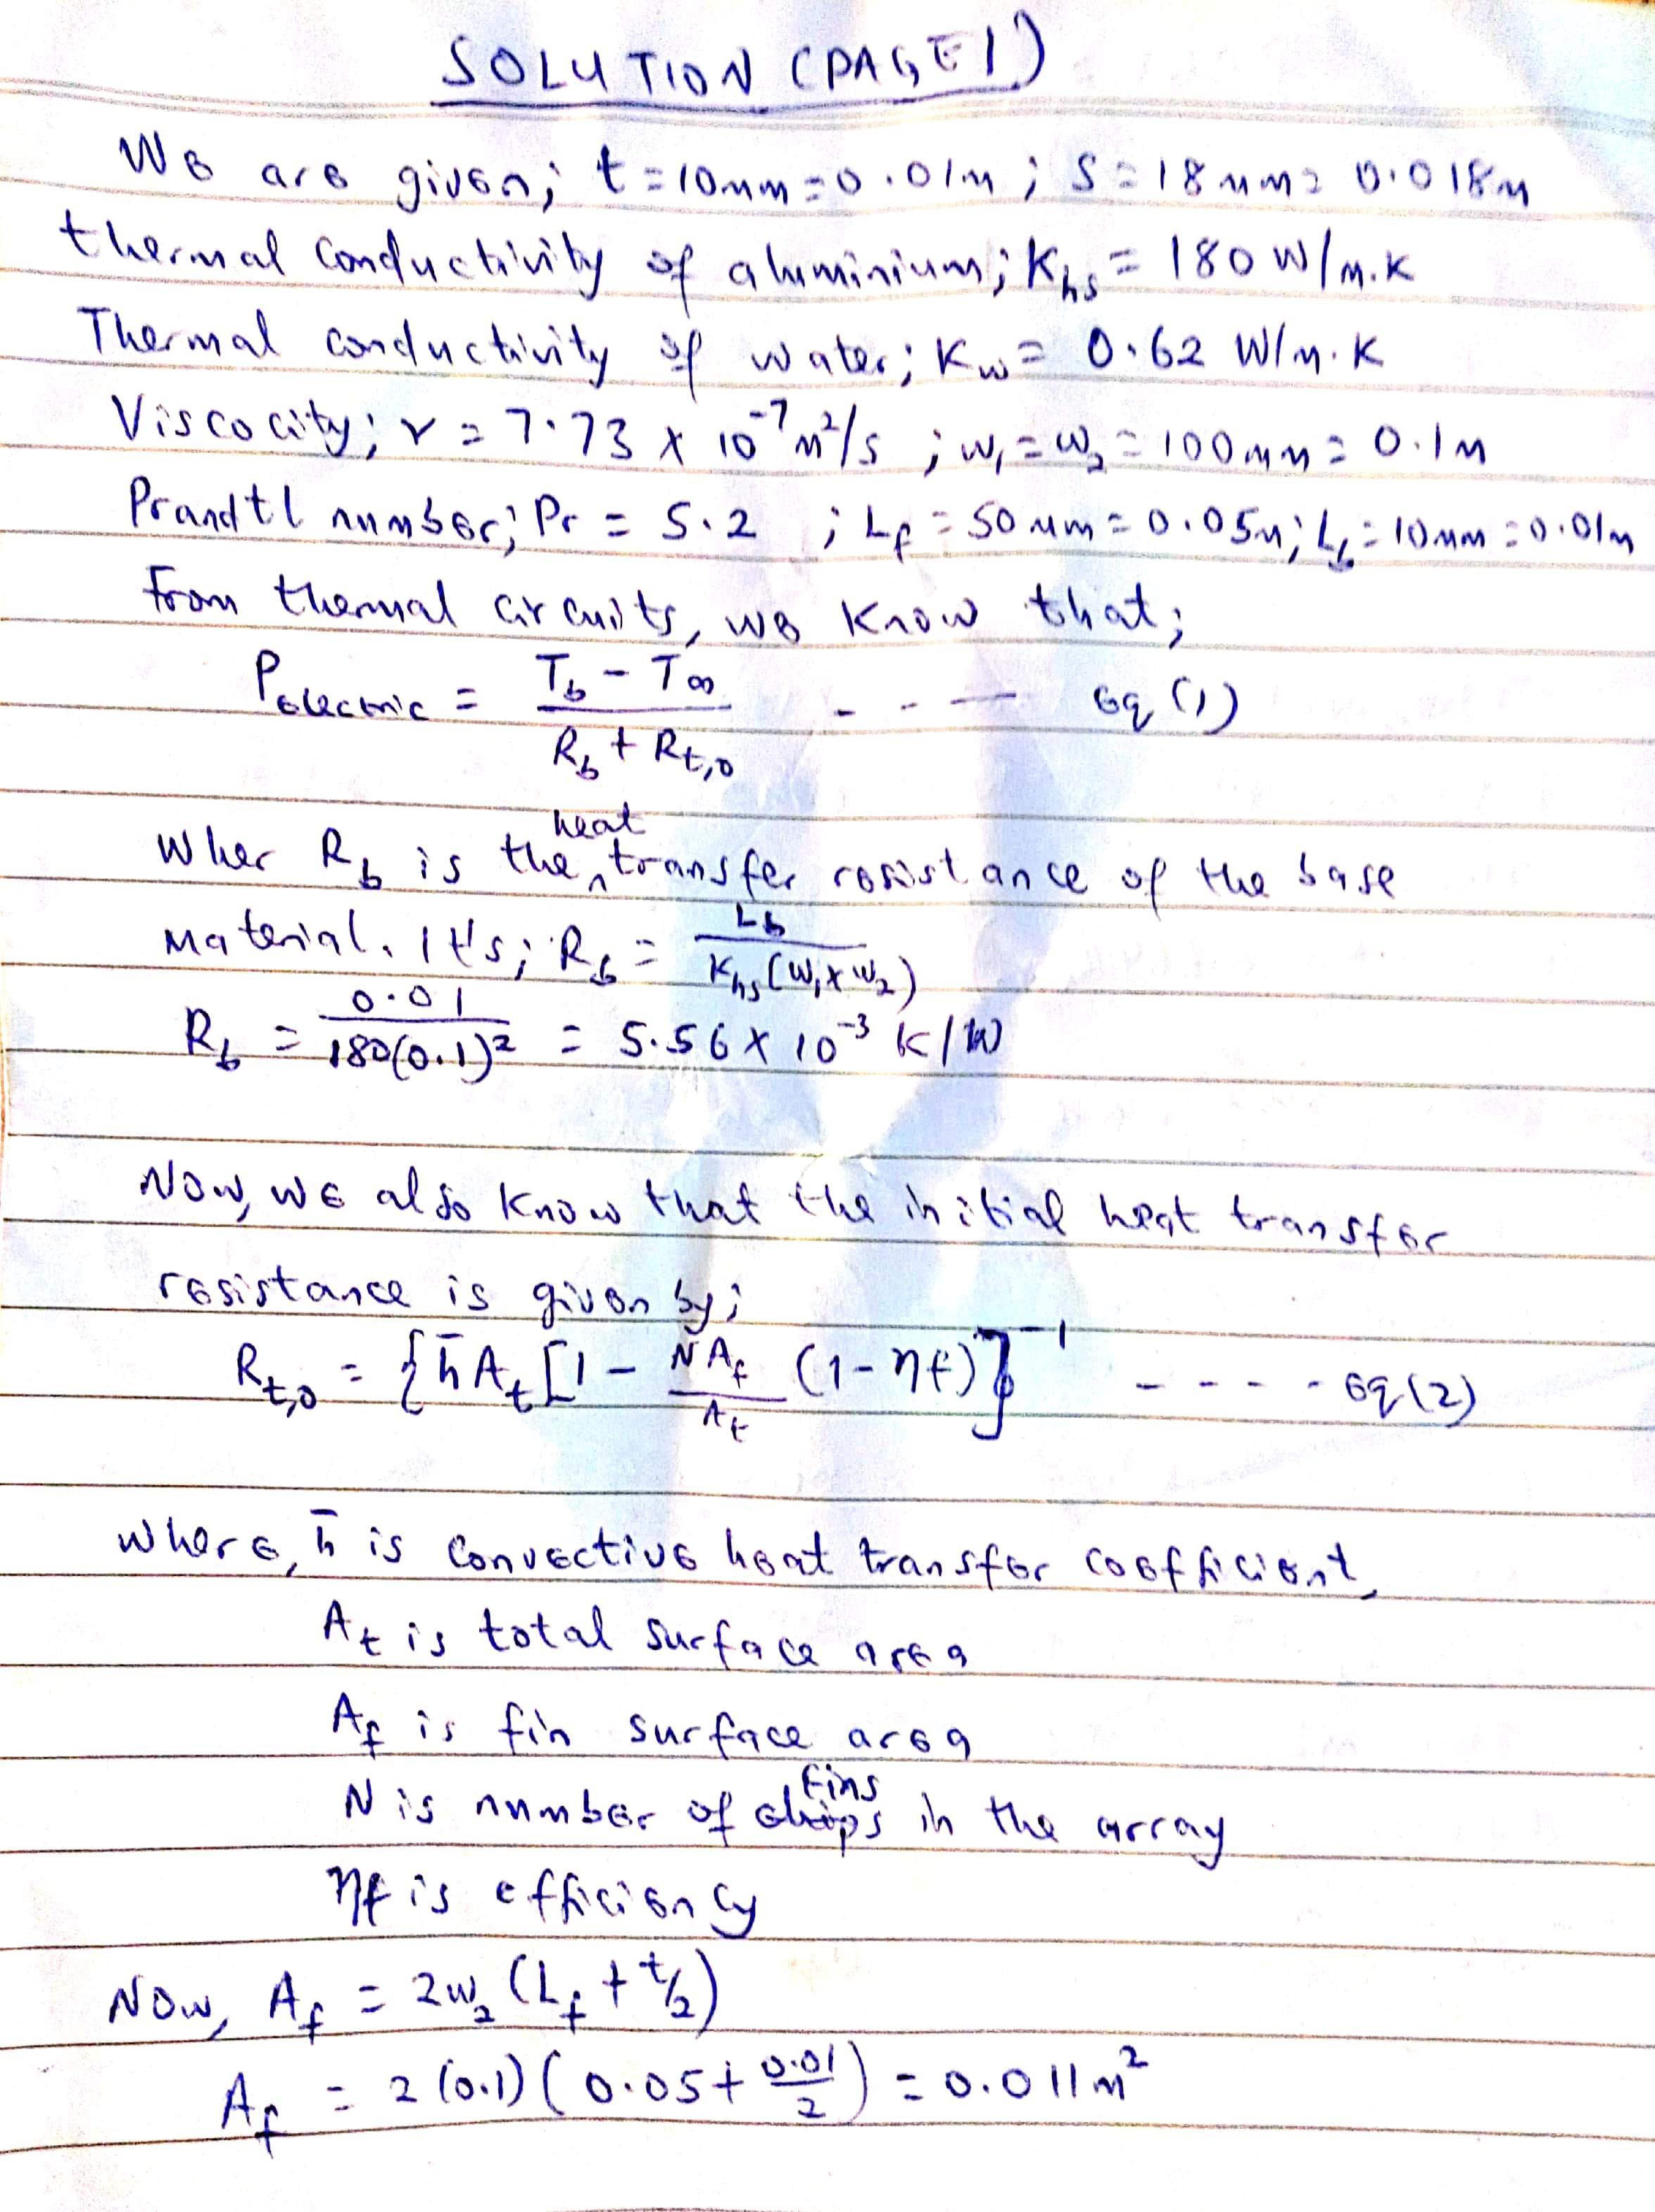 SOLUTION (PAGE 1)
We are given; t = 10mm = 0.01m ; S = 18mm = 0.018m
thermal conductivity of aluminium; K_hs = 180 W/m.K
Thermal conductivity of water; K_w = 0.62 W/m.K
Viscocity; ν = 7.73 x 10^-7 m²/s ; w₁ = w₂ = 100mm = 0.1m
Prandtl number; Pr = 5.2 ; L_f = 50mm = 0.05m; L_b = 10mm = 0.01m
From thermal circuits, we know that;
P_electric = (T_b - T_∞) / (R_b + R_t,o) - - - eq (1)
Wher R_b is the heat transfer resistance of the base
material. It's; R_b = L_b / (K_hs (w₁ x w₂))
R_b = 0.01 / (180(0.1)²) = 5.56 x 10^-3 K/W
Now, we also know that the initial heat transfer
resistance is given by;
R_t,o = {h̄ A_t [1 - (N A_f / A_t) (1 - ηf)]}^-1 - - - - eq (2)
where, h̄ is convective heat transfer coefficient,
A_t is total surface area
A_f is fin surface area
N is number of fins in the array
ηf is efficiency
Now, A_f = 2w₂ (L_f + t/2)
A_f = 2(0.1)(0.05 + 0.01/2) = 0.011m²